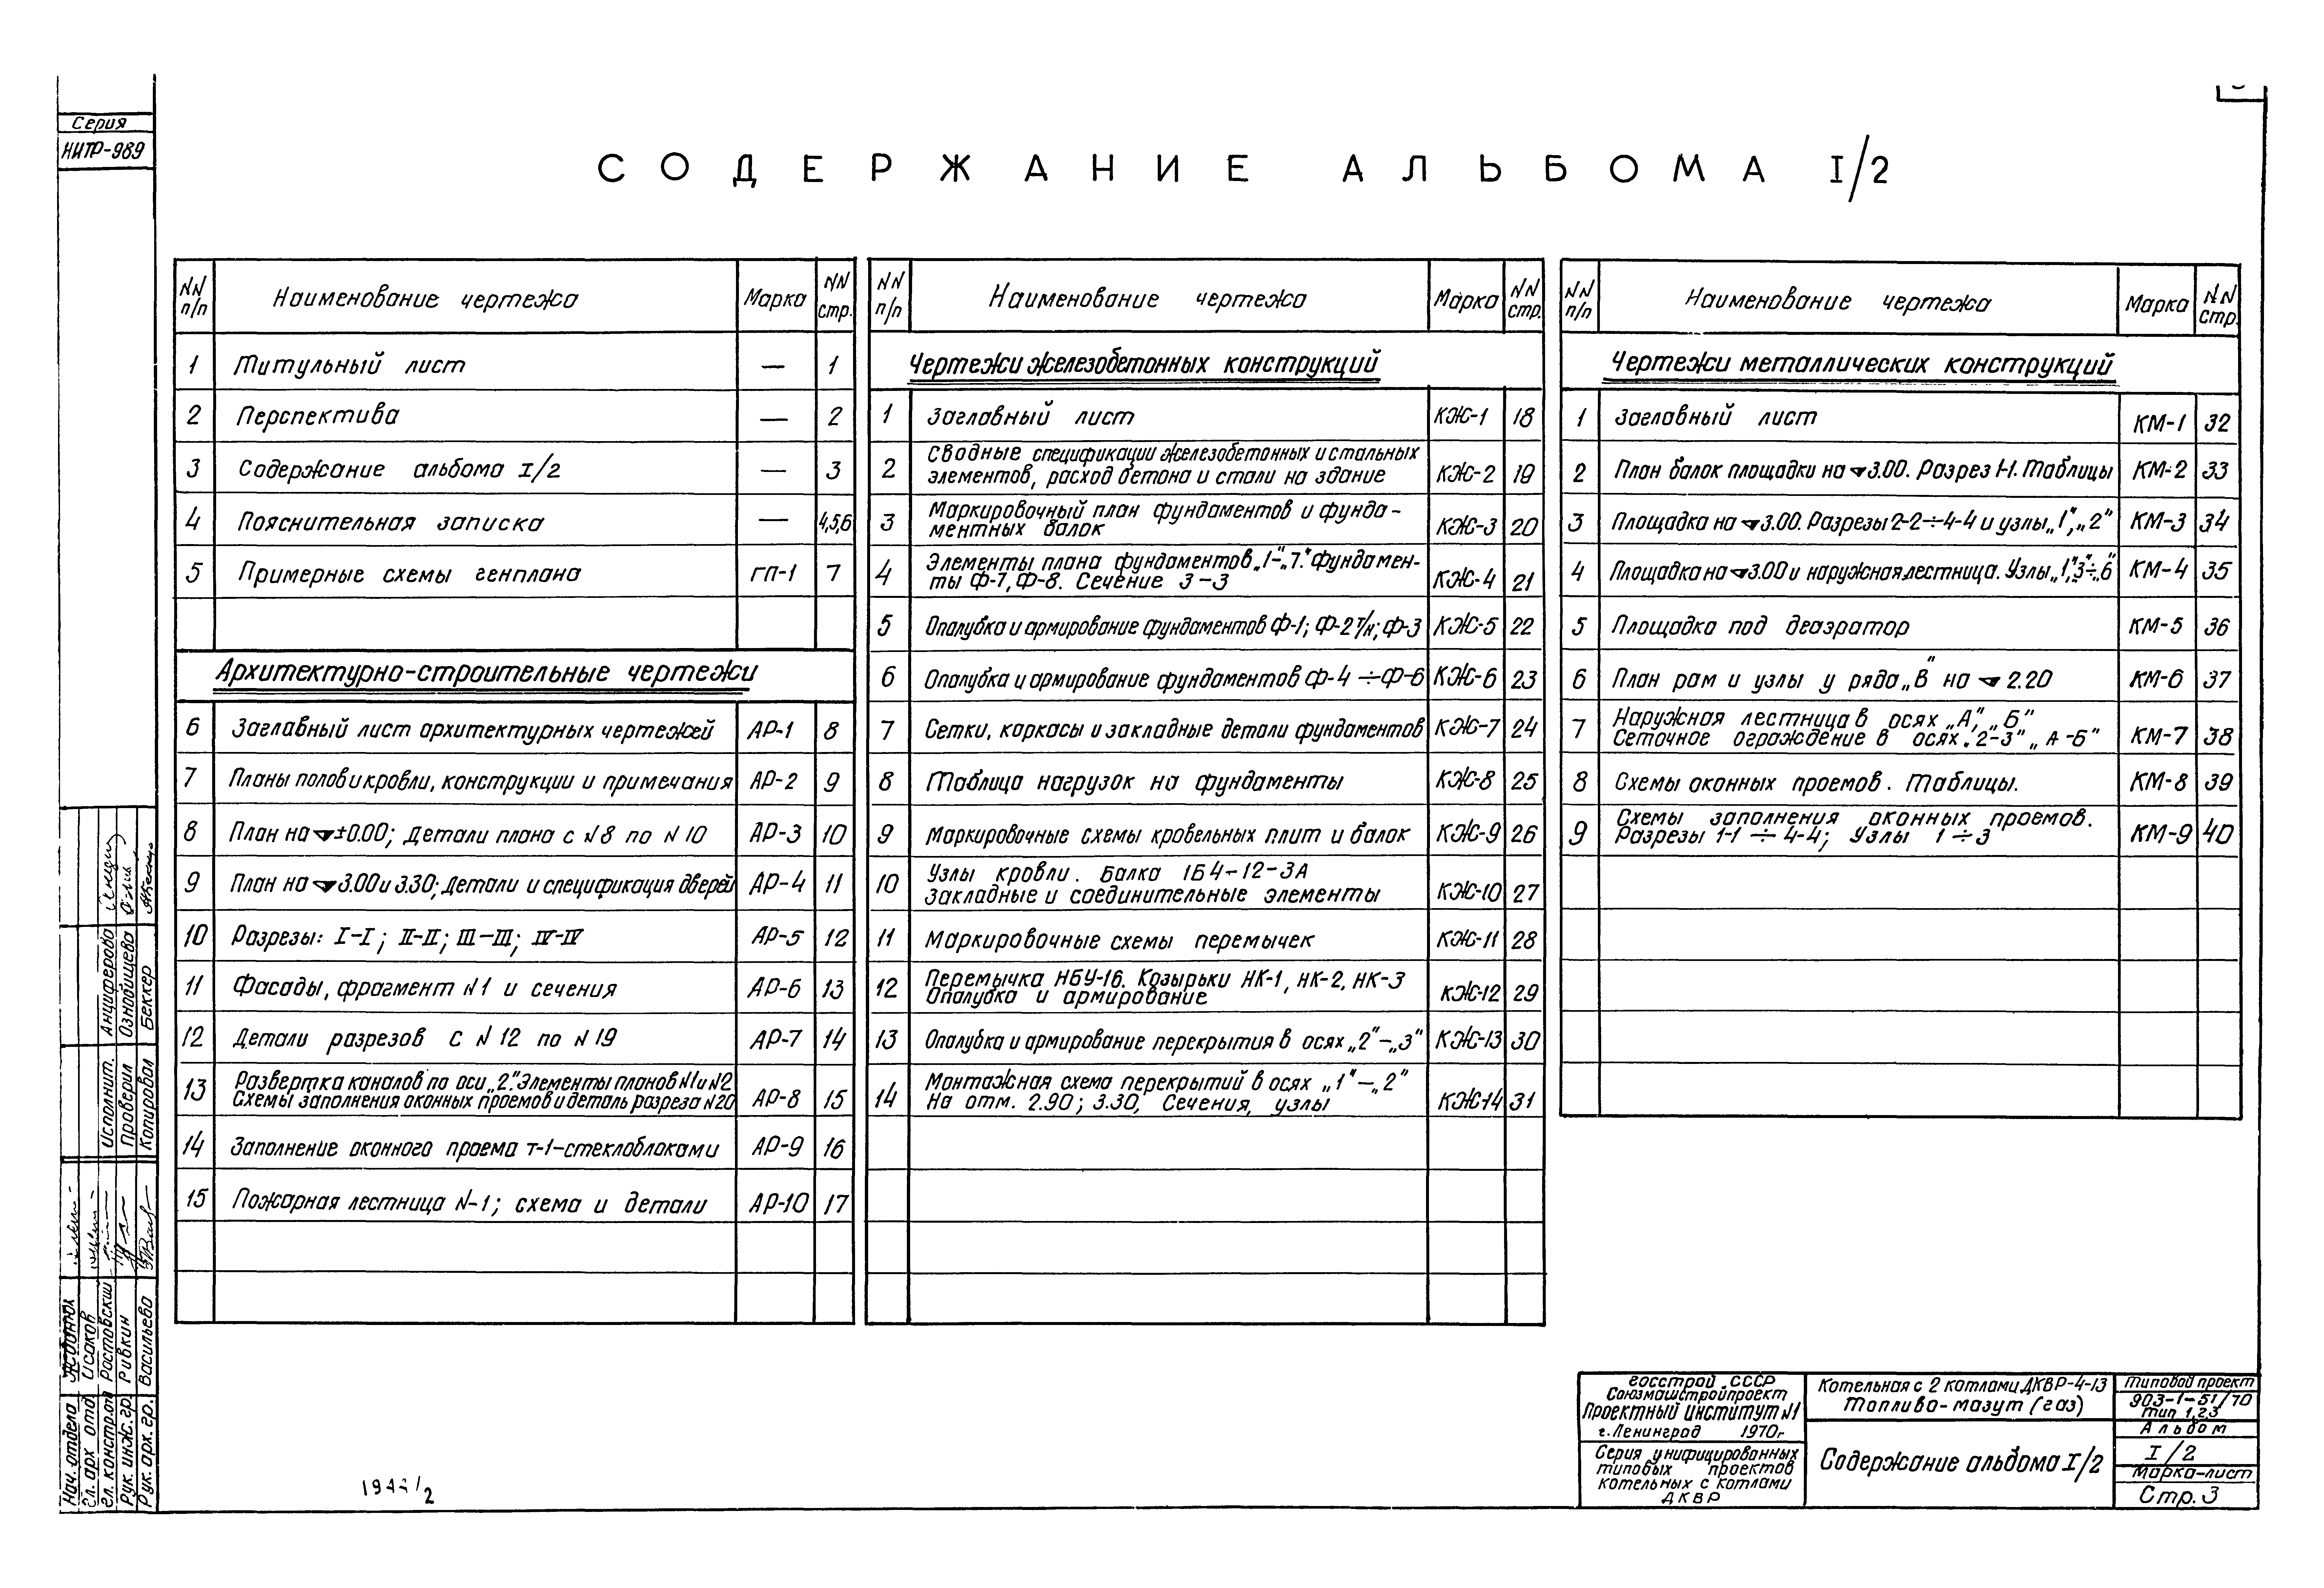 Серия
НИТР-989
СОДЕРЖАНИЕ АЛЬБОМА I/2
NN п/п Наименование чертежа Марка NN стр.
1 Титульный лист — 1
2 Перспектива — 2
3 Содержание альбома I/2 — 3
4 Пояснительная записка — 4,5,6
5 Примерные схемы генплана ГП-1 7
Архитектурно-строительные чертежи
6 Заглавный лист архитектурных чертежей АР-1 8
7 Планы полов и кровли, конструкции и примечания АР-2 9
8 План на ±0.00; Детали плана с N8 по N10 АР-3 10
9 План на 3.00 и 3.30; Детали и спецификация дверей АР-4 11
10 Разрезы: I-I; II-II; III-III; IV-IV АР-5 12
11 Фасады, фрагмент N1 и сечения АР-6 13
12 Детали разрезов с N12 по N19 АР-7 14
13 Развертка каналов по оси „2". Элементы планов N1 и N2
Схемы заполнения оконных проемов и деталь разреза N20 АР-8 15
14 Заполнение оконного проема т-1-стеклоблоками АР-9 16
15 Пожарная лестница N-1; схема и детали АР-10 17
NN п/п Наименование чертежа Марка NN стр.
Чертежи железобетонных конструкций
1 Заглавный лист КЖ-1 18
2 Сводные спецификации железобетонных и стальных
элементов, расход бетона и стали на здание КЖ-2 19
3 Маркировочный план фундаментов и фунда-
ментных балок КЖ-3 20
4 Элементы плана фундаментов „1-„7." Фундамен-
ты Ф-7, Ф-8. Сечение 3-3 КЖ-4 21
5 Опалубка и армирование фундаментов Ф-1; Ф-2 т/н; Ф-3 КЖ-5 22
6 Опалубка и армирование фундаментов Ф-4÷Ф-6 КЖ-6 23
7 Сетки, каркасы и закладные детали фундаментов КЖ-7 24
8 Таблица нагрузок на фундаменты КЖ-8 25
9 Маркировочные схемы кровельных плит и балок КЖ-9 26
10 Узлы кровли. Балка 1Б4-12-3А
Закладные и соединительные элементы КЖ-10 27
11 Маркировочные схемы перемычек КЖ-11 28
12 Перемычка НБУ-16. Козырьки НК-1, НК-2, НК-3
Опалубка и армирование КЖ-12 29
13 Опалубка и армирование перекрытия в осях „2"-„3" КЖ-13 30
14 Монтажная схема перекрытий в осях „1"-„2"
На отм. 2.90; 3.30, Сечения, узлы КЖ-14 31
NN п/п Наименование чертежа Марка NN стр.
Чертежи металлических конструкций
1 Заглавный лист КМ-1 32
2 План балок площадки на 3.00. Разрез 1-1. Таблицы КМ-2 33
3 Площадка на 3.00. Разрезы 2-2÷4-4 и узлы „1", „2" КМ-3 34
4 Площадка на 3.00 и наружная лестница. Узлы „1", „3"÷„6" КМ-4 35
5 Площадка под деаэратор КМ-5 36
6 План рам и узлы у ряда „В" на 2.20 КМ-6 37
7 Наружная лестница в осях „А", „Б"
Сеточное ограждение в осях „2-3" „А-Б" КМ-7 38
8 Схемы оконных проемов. Таблицы. КМ-8 39
9 Схемы заполнения оконных проемов.
Разрезы 1-1÷4-4; Узлы 1÷3 КМ-9 40
Исполнит. Анциферова
Проверил Ознобищева
Копировал Беккер
Нач. отдела
Гл. арх. отд. Исаков
Гл. констр. отд Ростовский
Рук. инж. гр. Ривкин
Рук. арх. гр. Васильева
Госстрой СССР
Союзмашстройпроект
Проектный институт N1
г. Ленинград 1970г
Серия унифицированных
типовых проектов
котельных с котлами
ДКВР
Котельная с 2 котлами ДКВР-4-13
Топливо-мазут (газ)
Содержание альбома I/2
Типовой проект
903-1-51/70
тип 1,2,3
Альбом
I/2
Марка-лист
Стр. 3